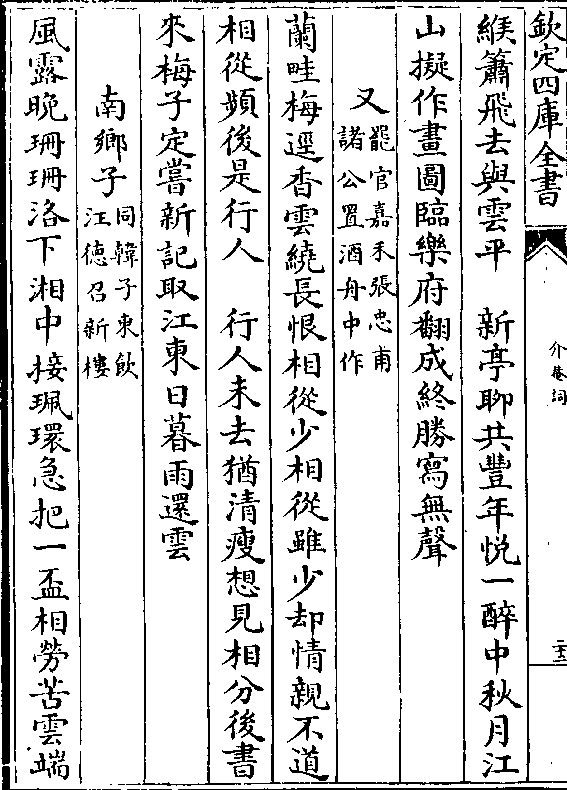 欽定四庫全書
介菴詞
二十三
緱簫飛去與雲平　新亭聊共豐年悦一醉中秋月江
山擬作畫圖臨樂府翻成終勝寫無聲
又罷官嘉禾張忠甫
諸公置酒舟中作
蘭畦梅逕香雲繞長恨相從少相從雖少却情親不道
相從頻後是行人　行人未去猶清瘦想見相分後書
來梅子定嘗新記取江東日暮雨還雲
南鄉子同韓子東飲
汪德召新樓
風露晚珊珊洛下湘中接珮環急把一盃相勞苦雲端